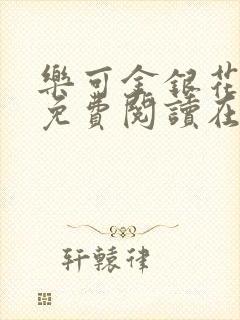 樂可金銀花
免費閱讀在
軒轅律